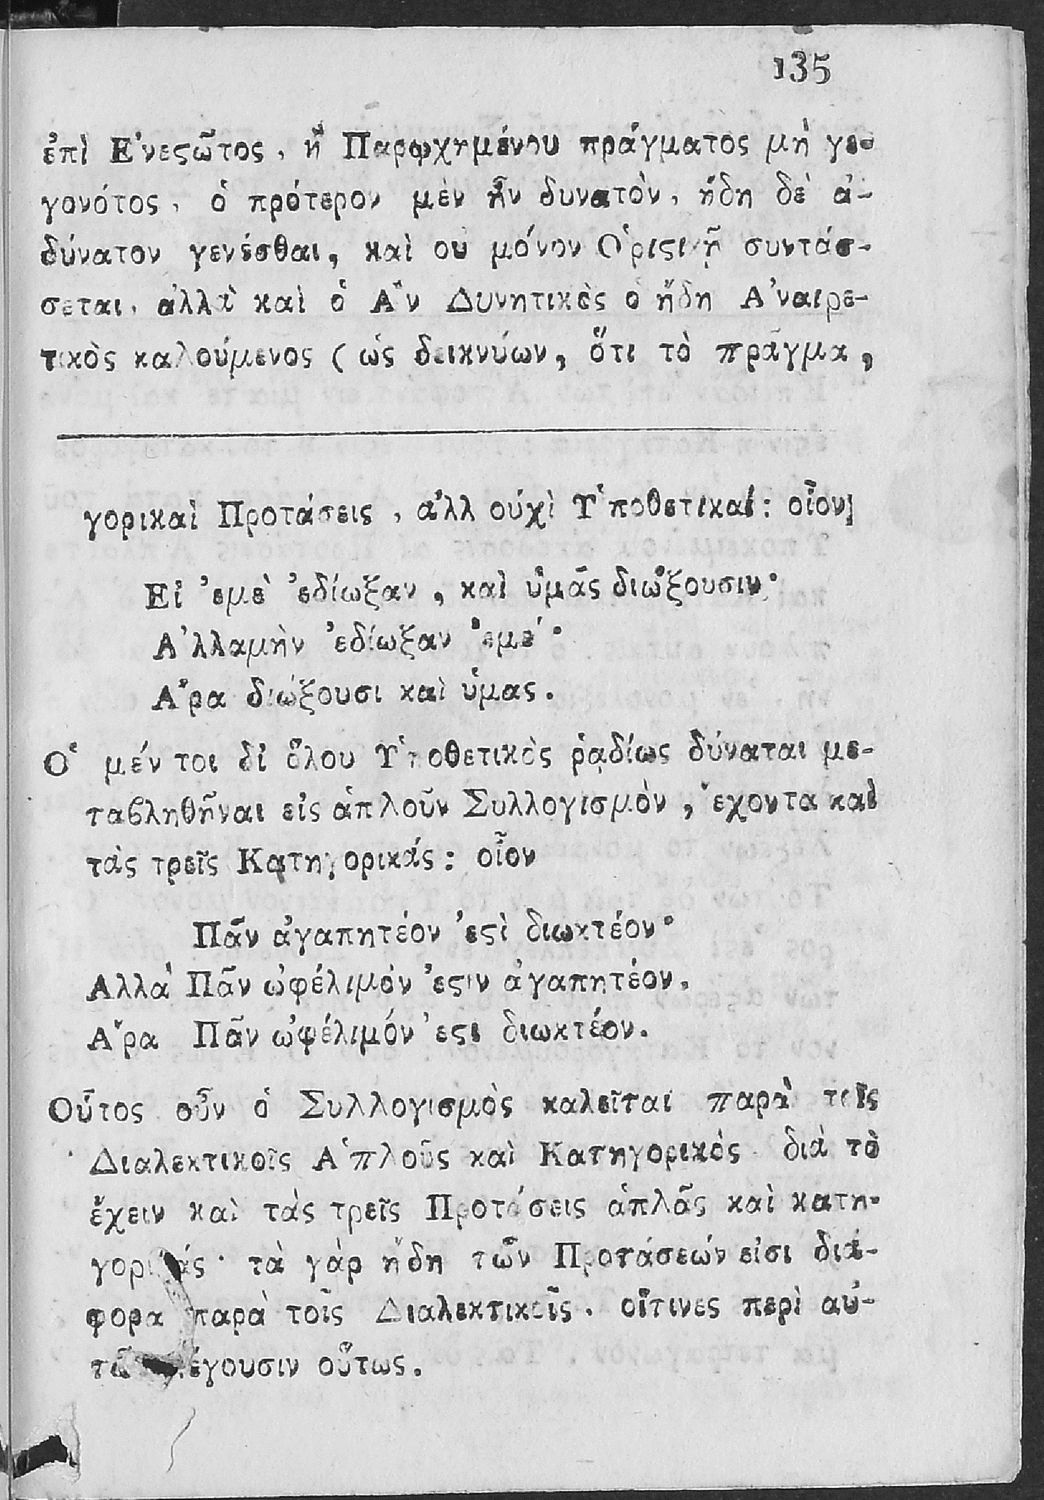 135
ἐπὶ Ε᾿νεςῶτος, ἢ Παρῳχημένου πράγματος μὴ γε-
γονότος, ὁ πρότερον μὲν ἦν δυνατὸν, ἤδη δὲ ἀ-
δύνατον γενέσθαι, καὶ οὐ μόνον Ο῾ριςικῇ συντάσ-
σεται, ἀλλὰ καὶ ὁ Α῍ν Δυνητικὸς ὁ ἤδη Α᾿ναιρε-
τικὸς καλούμενος (ὡς δεικνύων, ὅτι τὸ πρᾶγμα,
γορικαὶ Προτάσεις, ἀλλ οὐχὶ Υ῾ποθετικαί: οἷον
Εἰ ᾿εμὲ ᾿εδίωξαν, καὶ ὑμᾶς διώξουσιν·
Α᾿λλαμὴν ᾿εδίωξαν ᾿εμέ·
Α῎ρα διώξουσι καὶ ὑμας.
Ο῾ μέν τοι δἰ ὅλου Υ῾ποθετικὸς ῥᾳδίως δύναται με-
ταβληθῆναι εἰς ἁπλοῦν Συλλογισμὸν, ῎εχοντα καὶ
τὰς τρεῖς Κατηγορικάς: οἷον
Πᾶν ἀγαπητέον ᾿εςὶ διωκτέον·
Αλλὰ Πᾶν ὠφέλιμόν ᾿εςιν ἀγαπητέον.
Α῎ρα Πᾶν ὠφέλιμόν ᾿εςι διωκτέον.
Οὗτος οὖν ὁ Συλλογισμὸς καλεῖται παρὰ τοῖς
Διαλεκτικοῖς Α῾πλοῦς καὶ Κατηγορικὸς διὰ τὸ
ἔχειν καὶ τὰς τρεῖς Προτάσεις ἁπλᾶς καὶ κατη-
γορικάς· τὰ γὰρ ἤδη τῶν Προτάσεών εἰσι διά-
φορα παρὰ τοῖς Διαλεκτικοῖς. οἵτινες περὶ αὐ-
τῶν λέγουσιν οὕτως.